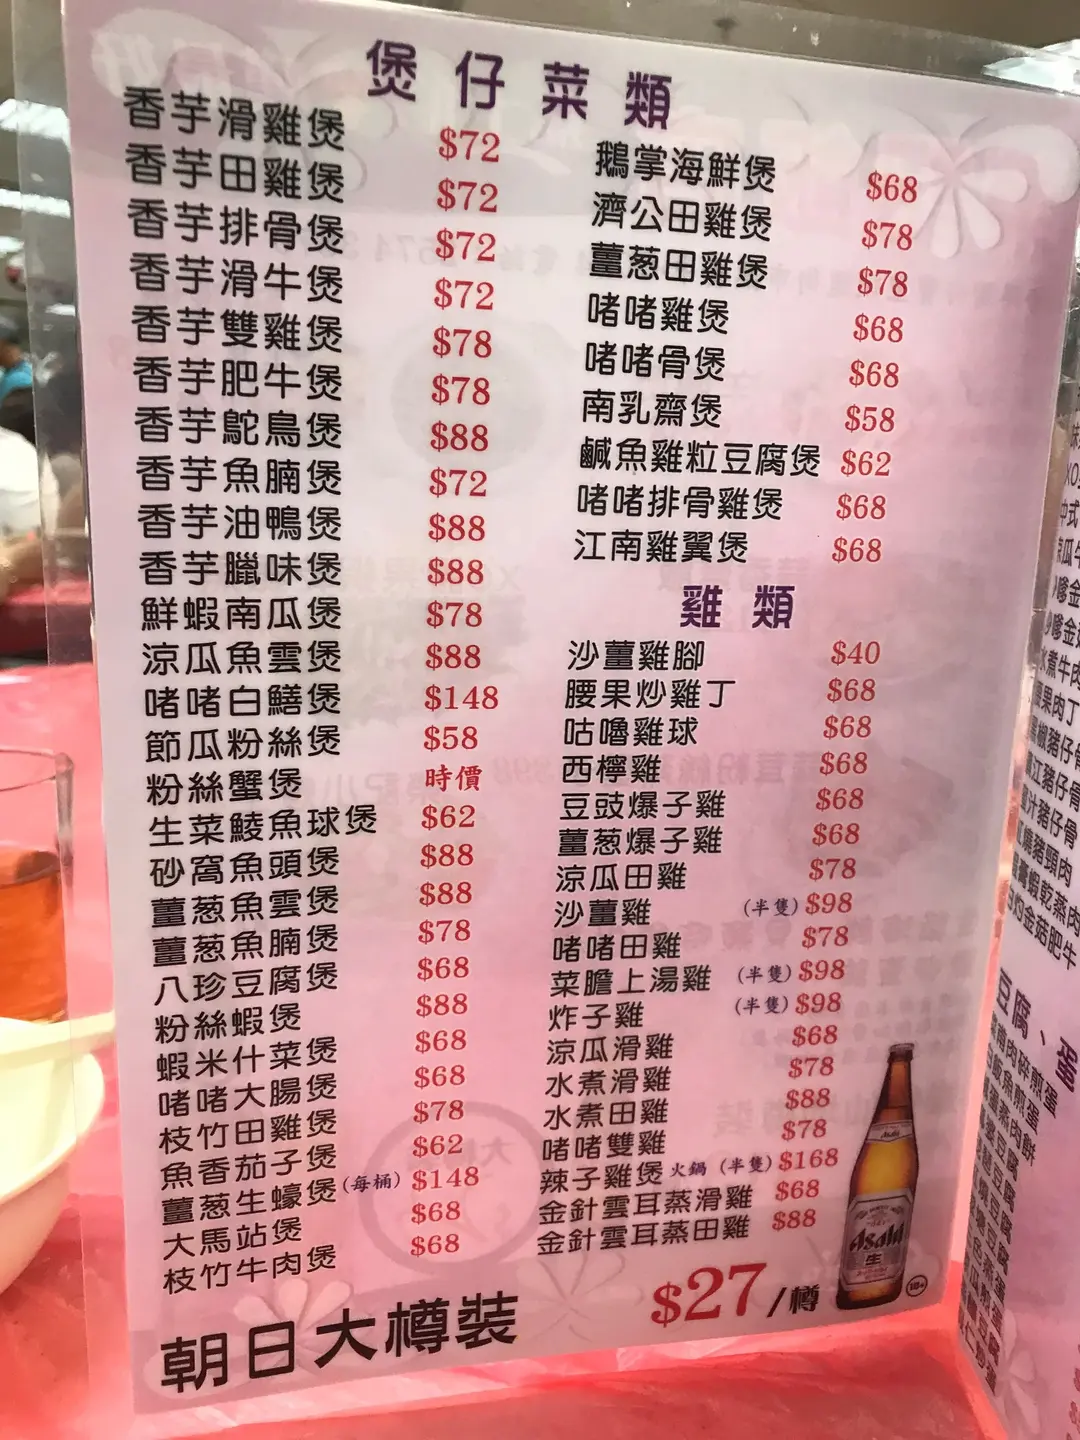 煲仔菜類
香芋滑雞煲 $72
香芋田雞煲 $72
香芋排骨煲 $72
香芋滑牛煲 $72
香芋雙雞煲 $78
香芋肥牛煲 $78
香芋鴕鳥煲 $88
香芋魚腩煲 $72
香芋油鴨煲 $88
香芋臘味煲 $88
鮮蝦南瓜煲 $78
涼瓜魚雲煲 $88
啫啫白鱔煲 $148
節瓜粉絲煲 $58
粉絲蟹煲 時價
生菜鯪魚球煲 $62
砂窩魚頭煲 $88
薑葱魚雲煲 $88
薑葱魚腩煲 $78
八珍豆腐煲 $68
粉絲蝦煲 $88
蝦米什菜煲 $68
啫啫大腸煲 $68
枝竹田雞煲 $78
魚香茄子煲 $62
薑葱生蠔煲 (每桶) $148
大馬站煲 $68
枝竹牛肉煲 $68
鵝掌海鮮煲 $68
濟公田雞煲 $78
薑葱田雞煲 $78
啫啫雞煲 $68
啫啫骨煲 $68
南乳齋煲 $58
鹹魚雞粒豆腐煲 $62
啫啫排骨雞煲 $68
江南雞翼煲 $68
雞類
沙薑雞腳 $40
腰果炒雞丁 $68
咕嚕雞球 $68
西檸雞 $68
豆豉爆子雞 $68
薑葱爆子雞 $68
涼瓜田雞 $78
沙薑雞 (半隻) $98
啫啫田雞 $78
菜膽上湯雞 (半隻) $98
炸子雞 (半隻) $98
涼瓜滑雞 $68
水煮滑雞 $78
水煮田雞 $88
啫啫雙雞 $78
辣子雞煲 火鍋 (半隻) $168
金針雲耳蒸滑雞 $68
金針雲耳蒸田雞 $88
朝日大樽裝 $27/樽
Asahi
生
18+
豆腐、蛋